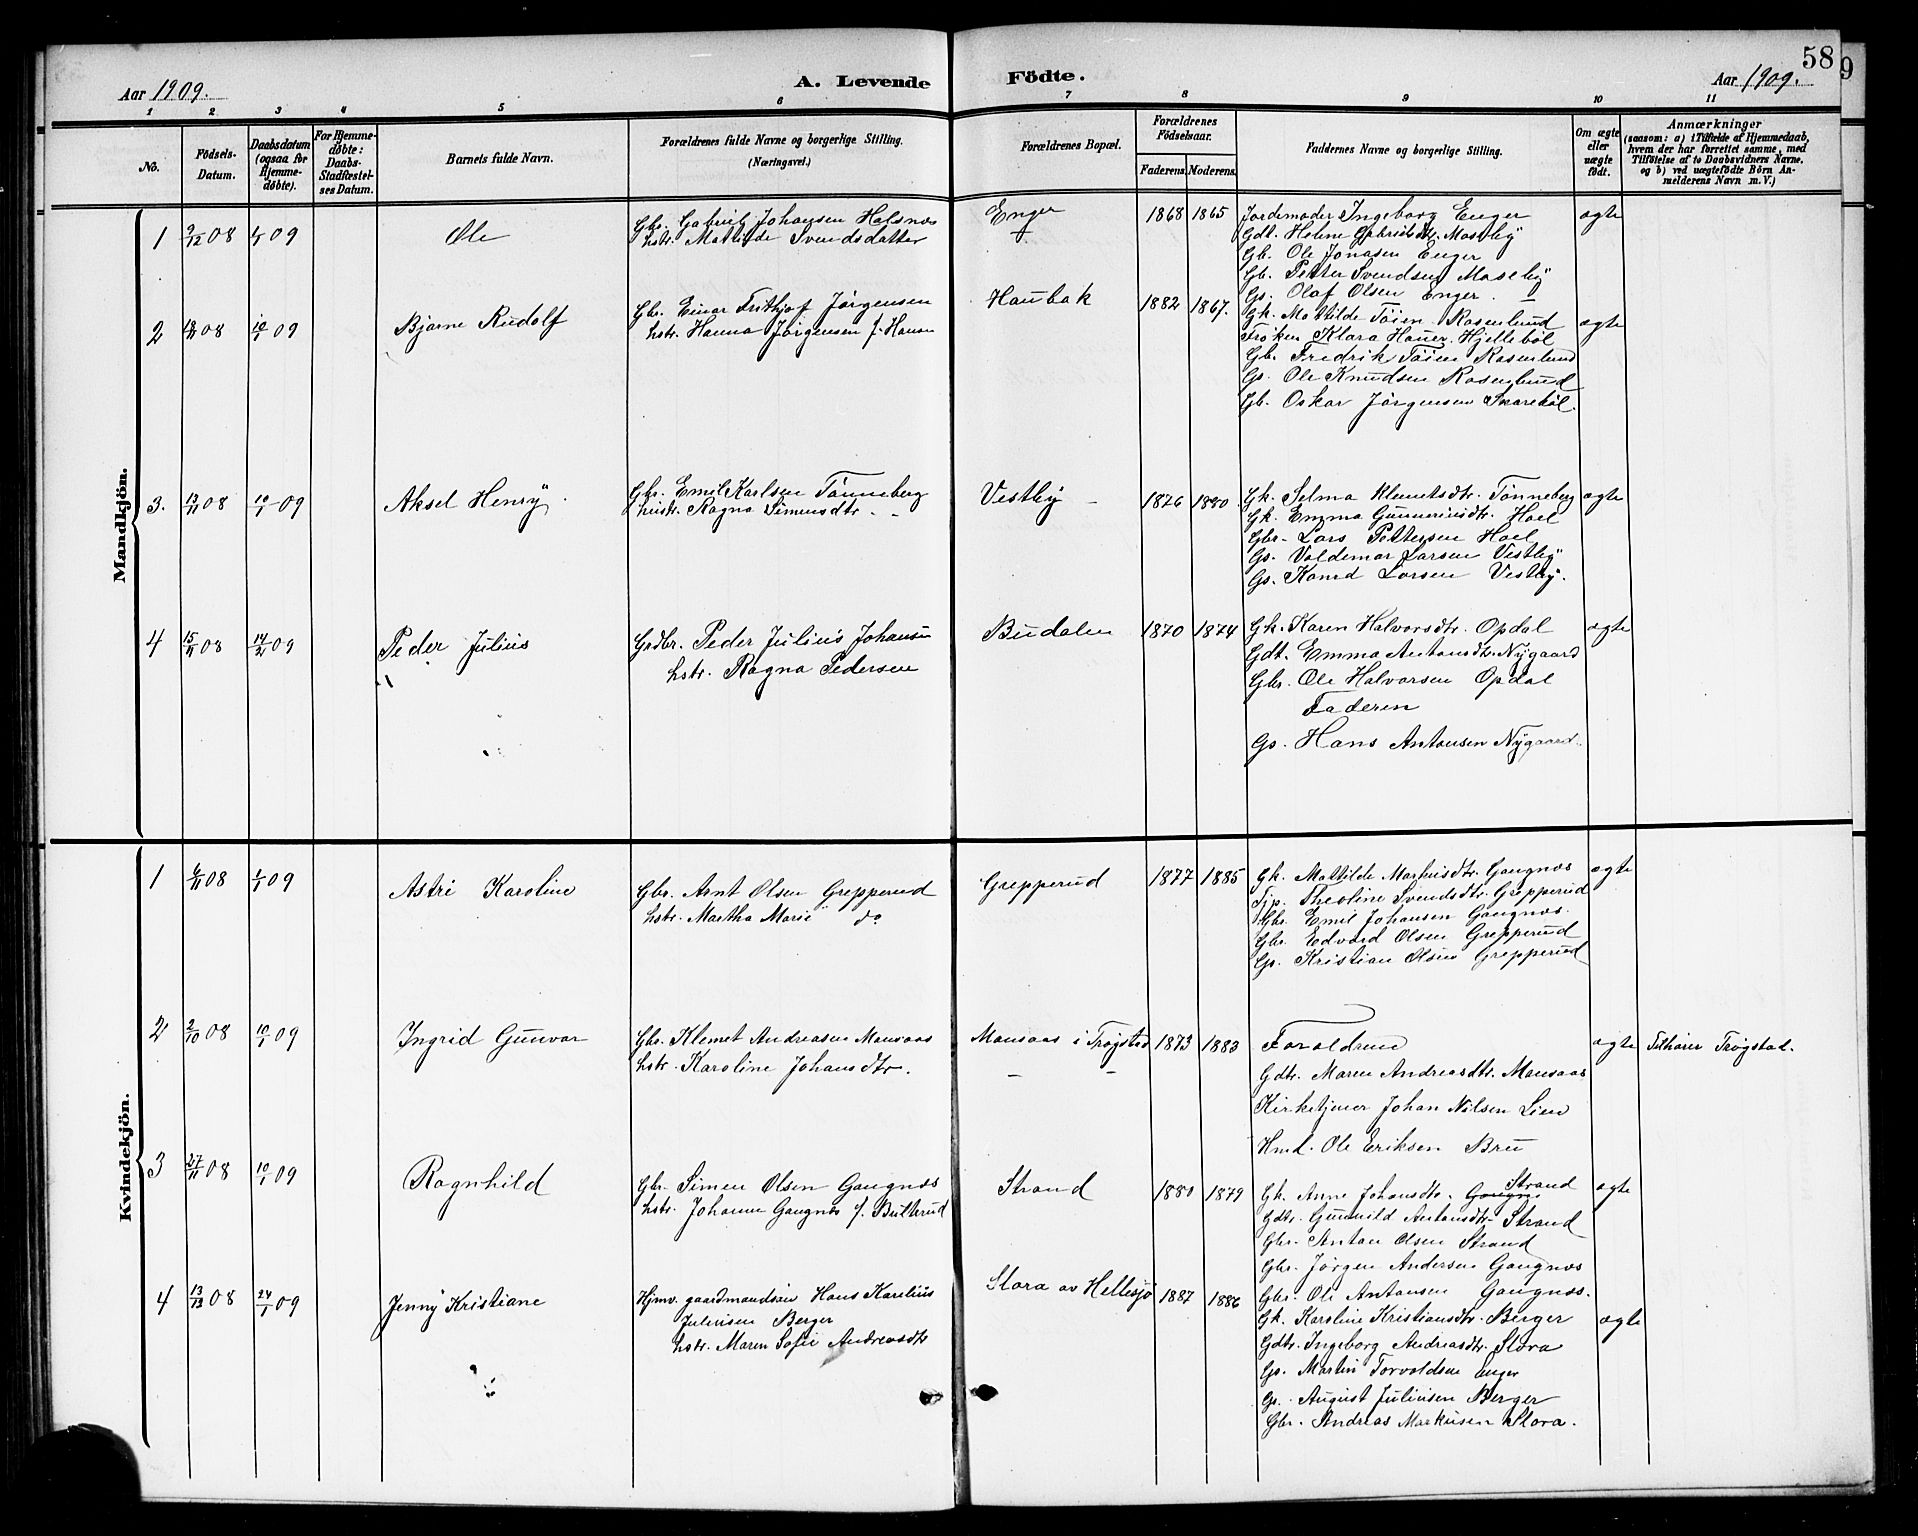 58
9
Aar 1909.
A. Levende
Födte.
Aar 1909.
1 2 3 4 5 6 7 8 9 10 11
No.
Födsels-
Datum.
Daabsdatum
(ogsaa for
Hjemme-
döbte).
For Hjemme-
döbte:
Daabs-
Stadfæstel-
ses Datum.
Barnets fulde Navn.
Forældrenes fulde Navne og borgerlige Stilling.
(Næringsvei.)
Forældrenes Bopæl.
Forældrenes
Födselsaar.
Faderens. Moderens.
Faddernes Navne og borgerlige Stilling.
Om ægte
eller
uægte
født.
Anmærkninger
(saasom: a) i Tilfælde af Hjemmedaab,
hvem der har forrettet samme, med
Tilföielse af to Daabsvidners Navne,
og b) ved uægtefödte Börn An-
melderens Navn m. V.)
Mandkjön.
1 9/12 08 6/1 09 Ole
Gbr. Gabriel Johansen Halsnæs
hstr. Mathilde Svendsdatter
Enger
1868 1865
Jordemoder Ingeborg Enger
Gdt. Helene Gabrielsdtr. Moseby
Gb. Ole Jonasen Enger
Gb. Petter Svendsen Moseby
Gs. Olaf Olsen Enger.
ægte
2 /11 08 10/1 09 Bjarne Rudolf
Gbr. Einar Frithjof Jørgensen
hstr. Hanna Jørgensen f. Hansen
Haubak
1882 1867.
Gk. Mathilde Tøien Rosenlund
Frøken Klara Hauer Hjellebøl
Gb. Fredrik Tøien Rosenlund
Gs. Ole Knudsen Rosenlund
Gb. Oskar Jørgensen Snarebøl.
ægte
3. 13/11 08 10/1 09 Aksel Henry
Gbr. Emil Karlsen Tønneberg
hustr. Ragna Simensdtr. -
Vestby -
1876 1880
Gk. Selma Klemetsdtr. Tønneberg
Gk. Emma Gunneriusdtr. Hoel
Gbr. Lars Pettersen Hoel
Gs. Valdemar Larsen Vestby
Gs. Konrad Larsen Vestby.
ægte
4 15/11 08 14/2 09 Peder Julius
Grdbr. Peder Julius Johansen
hstr. Ragna Pedersen
Budalen
1870 1874
Gk. Karen Halvorsdtr. Opdal
Gdt. Emma Antonsdtr. Nygaard
Gbr. Ole Halvorsen Opdal
Faderen
Gs. Hans Antonsen Nygaard.
ægte
Kvindekjön.
1 6/11 08 1/1 09 Astri Karoline
Gbr. Arnt Olsen Grepperud
hstr. Martha Marie do
Grepperud
1877 1885
Gk. Mathilde Marhusdtr. Gangnæs
Tjp. Theoline Svendsdtr. Grepperud
Gbr. Emil Johansen Gangnæs.
Gbr. Edvard Olsen Grepperud
Gs. Kristian Olsen Grepperud
ægte
2 2/10 08 10/1 09 Ingrid Gunvor
Gbr. Klemet Andreasen Monsaas
hstr. Karoline Johansdtr.
Monsaas i Trøgstad
- -
1873 1883
Forældrene
Gdtr. Maren Andreasdtr. Monsaas
Kirketjener Johan Nilsen Lien
Hmd. Ole Eriksen Bru
ægte
Tilhører Trøgstad.
3 27/11 08 10/1 09 Ragnhild
Gbr. Simen Olsen Gangnæs
hstr. Johanne Gangnæs f. Bulterud
Strand
1880 1879
Strand
Gk. Anne Johansdtr. Gangnæs
Gdtr. Gunhild Antonsdtr. Strand
Gbr. Anton Olsen Strand
Gbr. Jørgen Andersen Gangnæs
Gbr. Ole Antonsen Gangnæs.
ægte
4 13/12 08 24/1 09 Jenny Kristiane
Hjmv. gaardmandsøn Hans Karelius
Juliusen Berger
hstr. Maren Sofie Andreasdtr
Slora av Hellesjø
1887 1886
Gk. Karoline Kristiansdtr. Berger
Gdtr. Ingeborg Andreasdtr. Slora
Gs. Martin Torvoldsen Enger
Gs. August Juliusen Berger
Gbr. Andreas Markusen Slora.
ægte